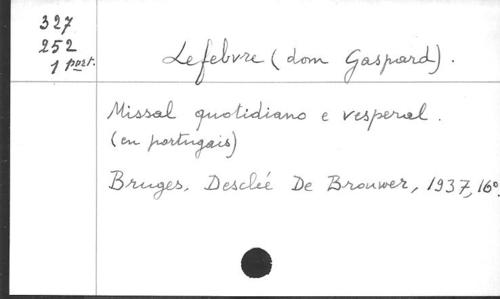 327
252
1 port.
Lefebvre (dom Gaspard).
Missal quotidiano e vesperal.
(en portugais)
Bruges, Desclée De Brouwer, 1937, 16°.